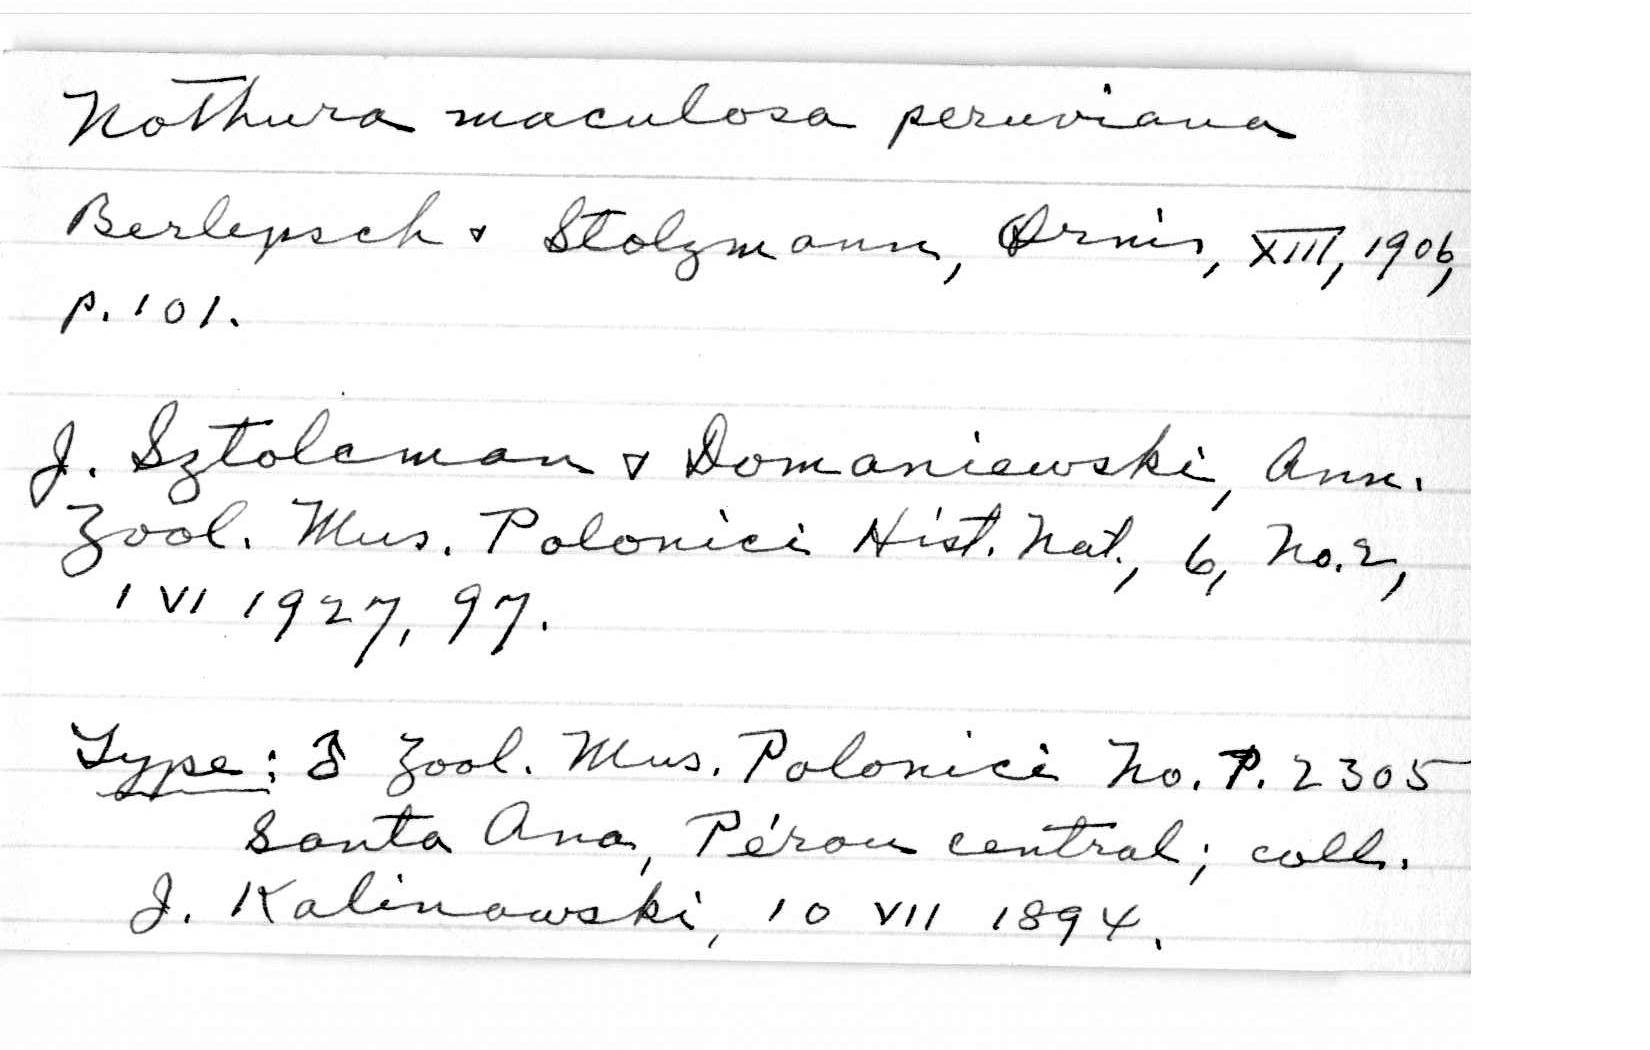 Nothura maculosa peruviana
Berlepsch & Stolzmann, Ornis, XIII, 1906,
p. 101.
J. Sztolcman & Domaniewski, Ann.
Zool. Mus. Polonici Hist. Nat., 6, No. 2,
1 VI 1927, 97.
Type: ♂ Zool. Mus. Polonici No. P. 2305
Santa Ana, Pérou central; coll.
J. Kalinowski, 10 VII 1894.